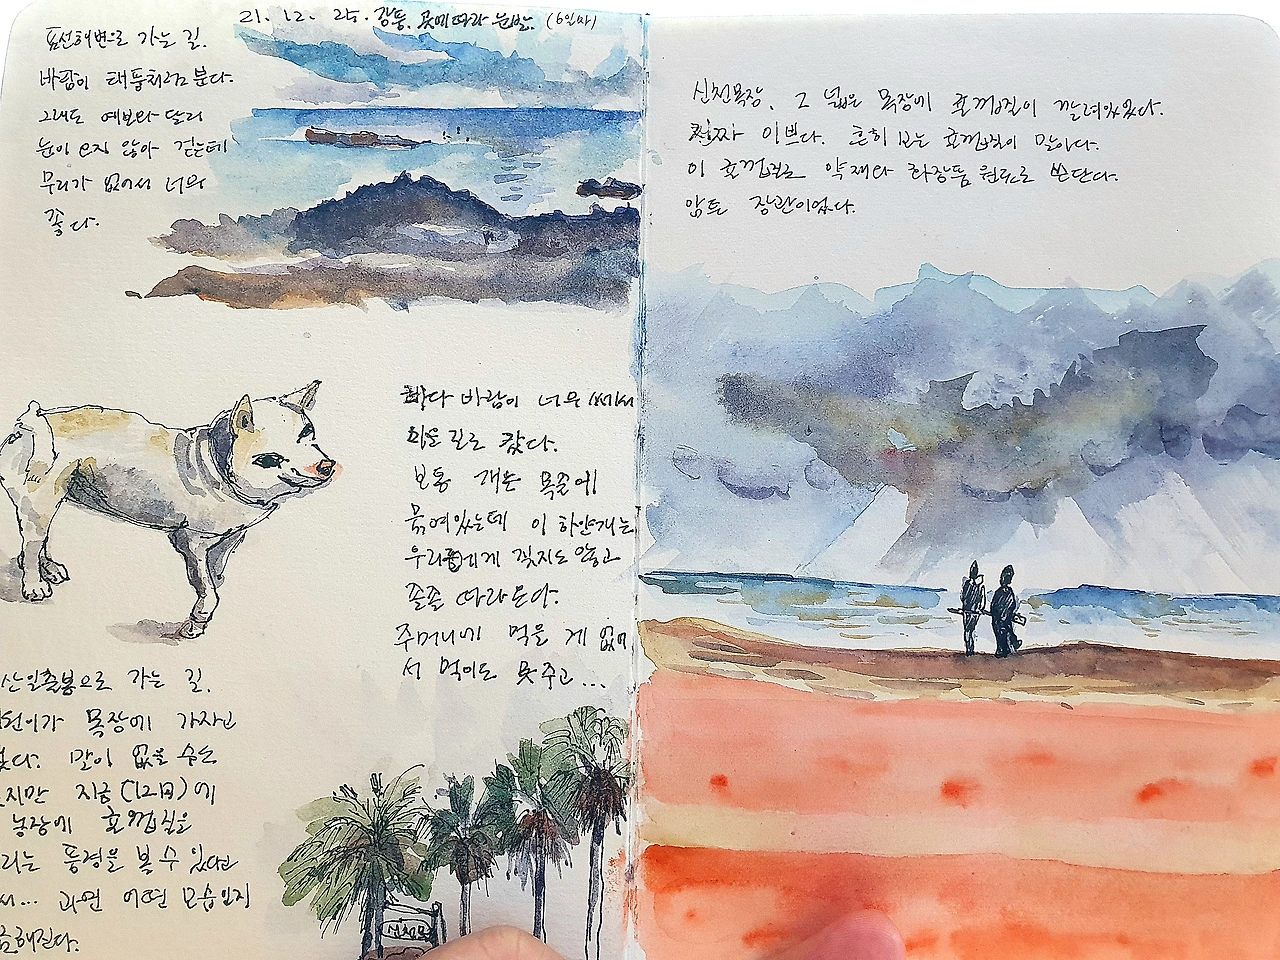 21. 12. 25. 강풍. 곳에따라 눈발. (6일차)
표선해변으로 가는 길.
바람이 태풍처럼 분다.
그래도 예보와 달리
눈이 오지 않아 걷는데
무리가 없어서 너무
좋다.
바다 바람이 너무 쎄서
외온 길로 갔다.
보통 개는 목줄에
묶여있는데 이 하얀개는
우리에게 짖지도 않고
졸졸 따라온다.
주머니에 먹을 게 없어
서 먹이도 못주고...
산일출봉으로 가는 길.
목장에 가자고
말이 없을 수도
지만 지금(12月)에
농장에 귤껍질을
리는 풍경을 볼 수 있다고
서... 과연 어떤 모습인지
금해진다.
신천목장. 그 넓은 목장에 귤껍질이 깔려있었다.
진짜 이쁘다. 흔히 보는 귤껍질이 말이다.
이 귤껍질로 약재와 화장품 원료로 쓴단다.
암튼 장관이었다.